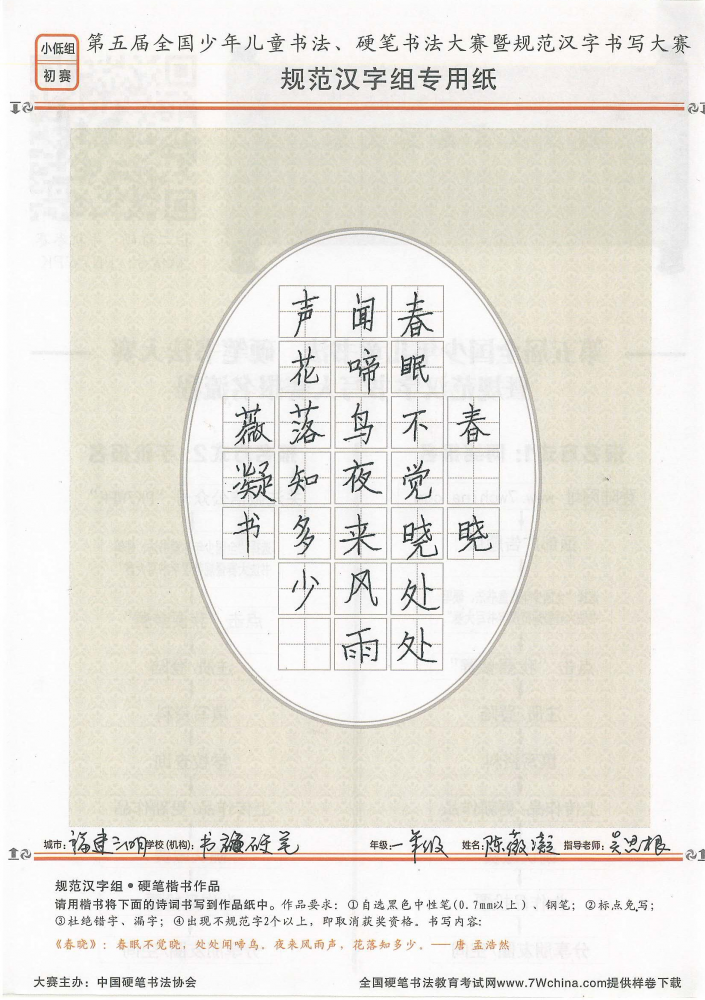 小低组
初赛
第五届全国少年儿童书法、硬笔书法大赛暨规范汉字书写大赛
规范汉字组专用纸
春晓
春眠不觉晓处处
闻啼鸟夜来风雨
声花落知多少
薇凝书
城市：福建三明 学校(机构)：书疆硬笔 年级：一年级 姓名：陈薇凝 指导老师：吴思根
规范汉字组●硬笔楷书作品
请用楷书将下面的诗词书写到作品纸中。作品要求：①自选黑色中性笔(0.7mm以上)、钢笔；②标点免写；
③杜绝错字、漏字；④出现不规范字2个以上，即取消获奖资格。书写内容：
《春晓》：春眠不觉晓，处处闻啼鸟。夜来风雨声，花落知多少。——唐 孟浩然
大赛主办：中国硬笔书法协会
全国硬笔书法教育考试网www.7Wchina.com提供样卷下载